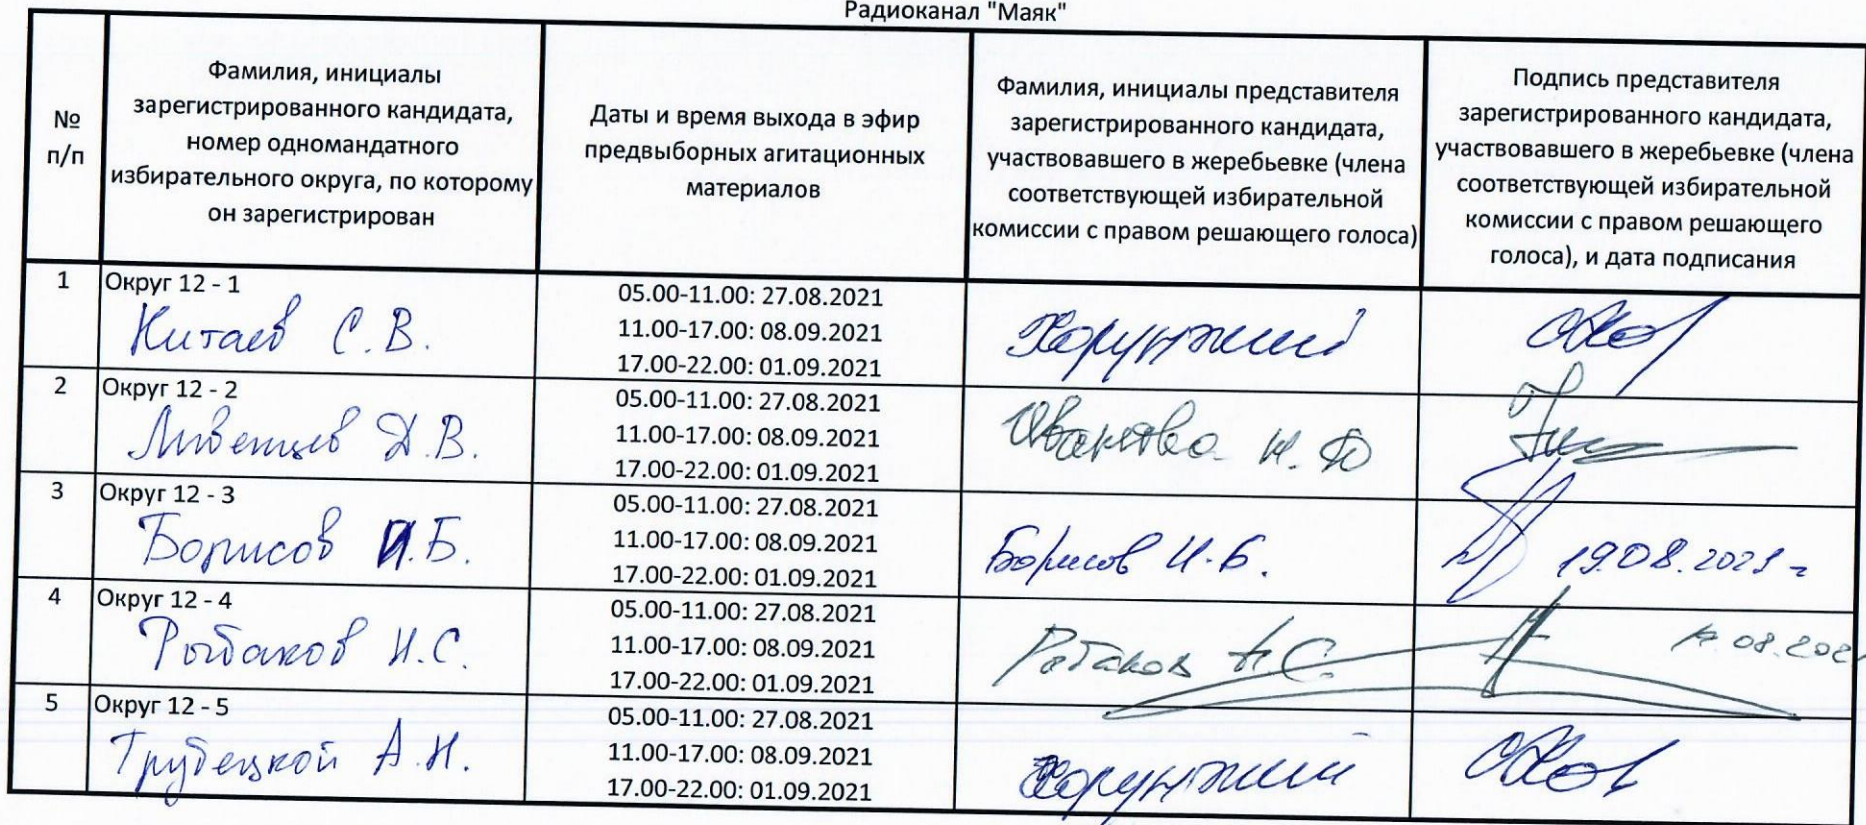 Радиоканал "Маяк"
№
п/п
Фамилия, инициалы
зарегистрированного кандидата,
номер одномандатного
избирательного округа, по которому
он зарегистрирован
Даты и время выхода в эфир
предвыборных агитационных
материалов
Фамилия, инициалы представителя
зарегистрированного кандидата,
участвовавшего в жеребьевке (члена
соответствующей избирательной
комиссии с правом решающего голоса)
Подпись представителя
зарегистрированного кандидата,
участвовавшего в жеребьевке (члена
соответствующей избирательной
комиссии с правом решающего
голоса), и дата подписания
1
Округ 12 - 1
Китаев С.В.
05.00-11.00: 27.08.2021
11.00-17.00: 08.09.2021
17.00-22.00: 01.09.2021
Хорунжий
2
Округ 12 - 2
Ливенцев Д.В.
05.00-11.00: 27.08.2021
11.00-17.00: 08.09.2021
17.00-22.00: 01.09.2021
3
Округ 12 - 3
Борисов И.Б.
05.00-11.00: 27.08.2021
11.00-17.00: 08.09.2021
17.00-22.00: 01.09.2021
Борисов И.Б.
19.08.2021 г
4
Округ 12 - 4
Рыбаков Н.С.
05.00-11.00: 27.08.2021
11.00-17.00: 08.09.2021
17.00-22.00: 01.09.2021
Рыбаков Н.С.
5
Округ 12 - 5
Трубецкой А.Н.
05.00-11.00: 27.08.2021
11.00-17.00: 08.09.2021
17.00-22.00: 01.09.2021
Хорунжий